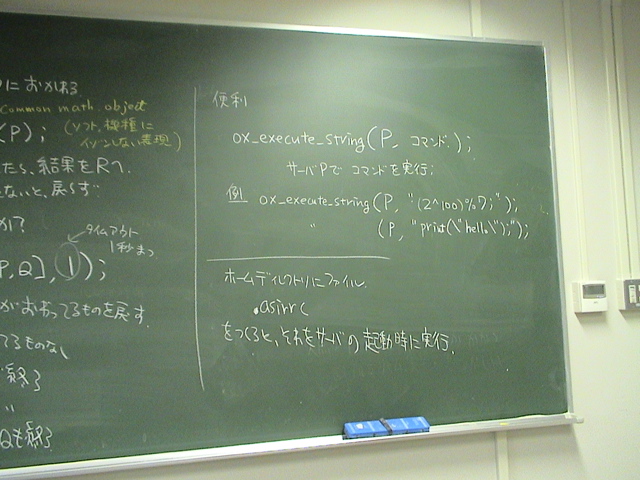 Pにおかれる
common math object
(P); (ソフト,機種に
イゾンしない表現)
たら、結果をRへ
ないと、戻らず
か?
タイムアウト
1秒まつ
P,Q], 1);
がおわってるものを戻す.
てるものなし
終了
〃
Qも終了
便利
ox_execute_string(P, コマンド);
サーバPで コマンドを実行;
例 ox_execute_string(P, "(2^100)%7;");
〃 (P, "print(\"hello\");");
ホームディレクトリにファイル.
.asirrc
をつくると、それをサーバの起動時に実行.